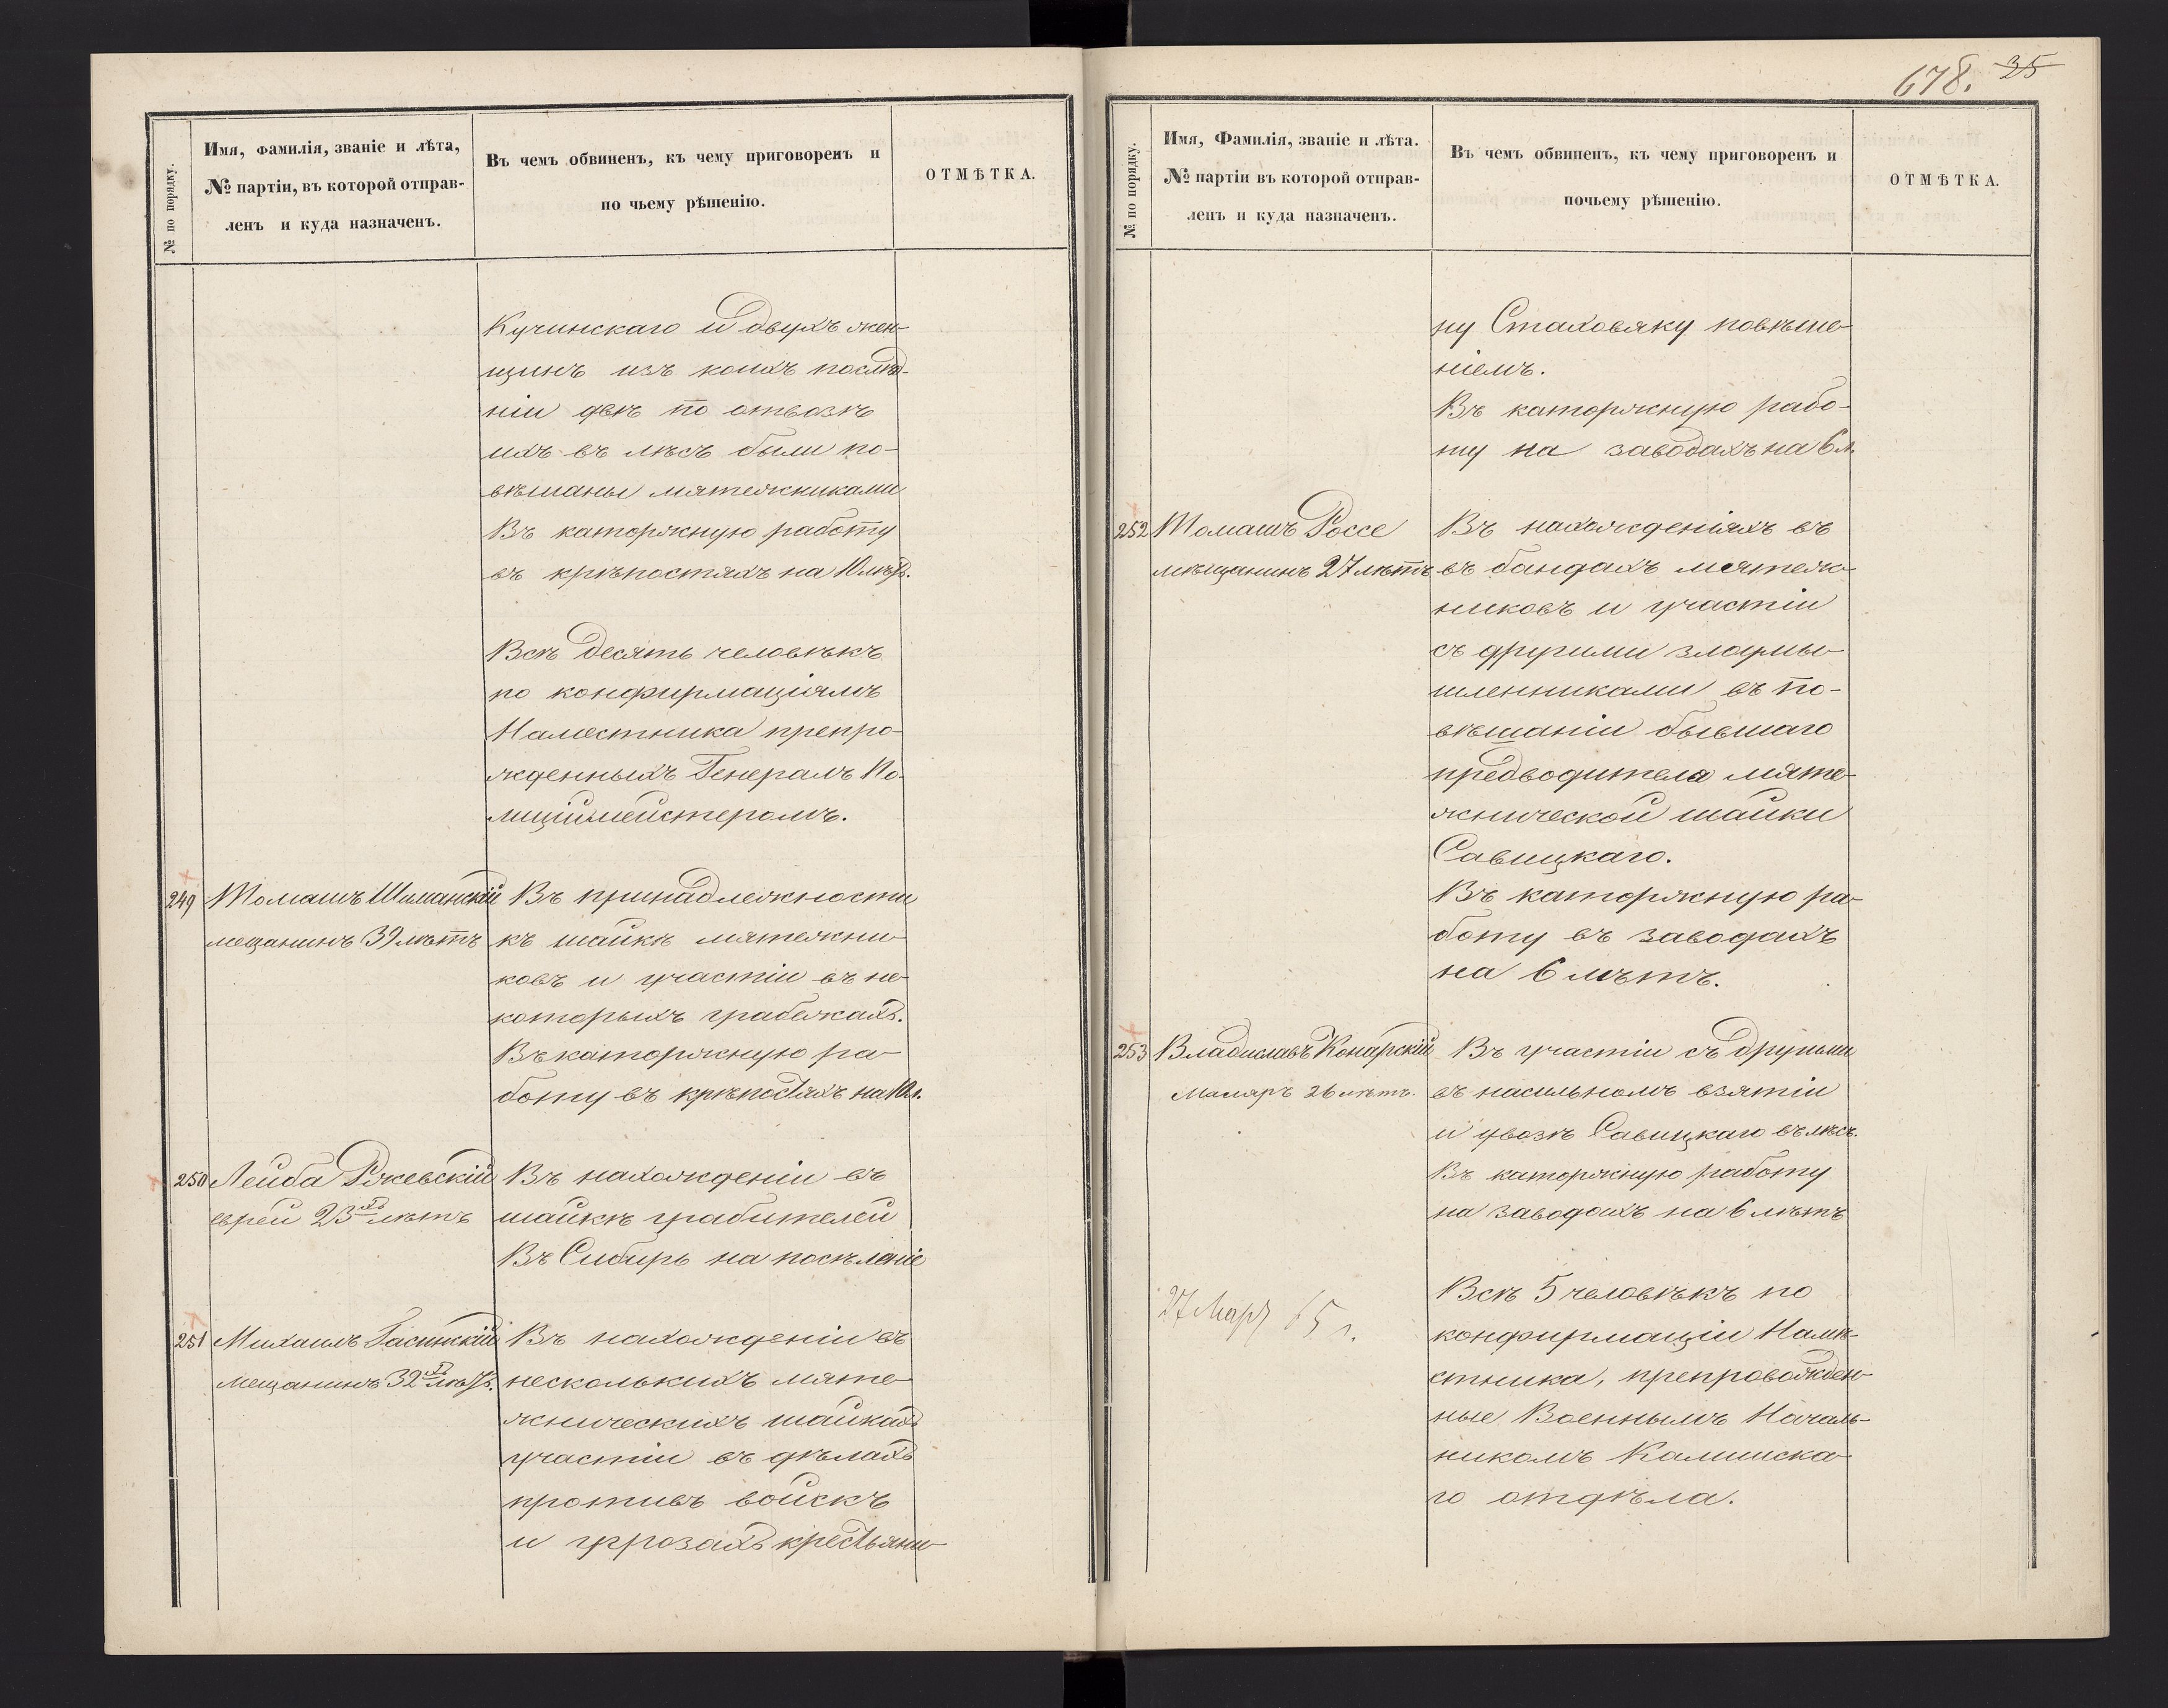 678. 35
№ по порядку.
Имя, фамилія, званіе и лѣта,
№ партіи, въ которой отправ-
ленъ и куда назначенъ.
Въ чемъ обвиненъ, къ чему приговоренъ и
по чьему рѣшенію.
ОТМѢТКА.
Кучинскаго и двухъ жен-
щинъ изъ коихъ послѣд-
ніи двѣ по отвозѣ
ихъ въ лѣсъ были по-
вѣшаны мятежниками
Въ каторжную работу
въ крѣпостяхъ на 10 лѣтъ.
Всѣ десять человѣкъ
по конфирмаціямъ
Намѣстника препро-
жденныхъ Генералъ По-
лиціймейстеромъ.
249 Томашъ Шиманскій
мещанинъ 39 лѣтъ
Въ принадлежности
къ шайкѣ мятежни-
ковъ и участіи въ не-
которыхъ грабежахъ.
Въ каторжную ра-
боту въ крѣпостяхъ на 10 л.
250 Лейба Ржевскій
еврей 23хъ лѣтъ
Въ нахожденіи въ
шайкѣ грабителей
Въ Сибирь на поселеніе
251 Михаилъ Гасинскій
мещанинъ 32хъ лѣтъ.
Въ нахожденіи въ
несколькихъ мяте-
жническихъ шайкахъ
участіи въ дѣлахъ
противъ войскъ
и угрозахъ крестьяни-
№ по порядку.
Имя, Фамилія, званіе и лѣта.
№ партіи въ которой отправ-
ленъ и куда назначенъ.
Въ чемъ обвиненъ, къ чему приговоренъ и
почьему рѣшенію.
ОТМѢТКА.
ну Стаховяку повѣше-
ніемъ.
Въ каторжную рабо-
ту на заводахъ на 6 л.
252 Томашъ Россе
мѣщанинъ 27 лѣтъ
Въ нахожденіяхъ въ
въ бандахъ мятеж-
никовъ и участіи
съ другими злоумы-
шленниками въ по-
вѣшаніи бывшаго
предводителя мяте-
жнической шайки
Савицкаго.
Въ каторжную ра-
боту въ заводахъ
на 6 лѣтъ.
253 Владиславъ Конарскій
Маляръ 26 лѣтъ.
Въ участіи съ другими
въ насильномъ взятіи
и увозѣ Савицкаго въ лѣсъ.
Въ каторжную работу
на заводахъ на 6 лѣтъ
27 Мар 65 г.
Всѣ 5 человѣкъ по
конфирмаціи Намѣ-
стника, препровожден-
ные Военнымъ Началь-
никомъ Калишска-
го отдѣла.